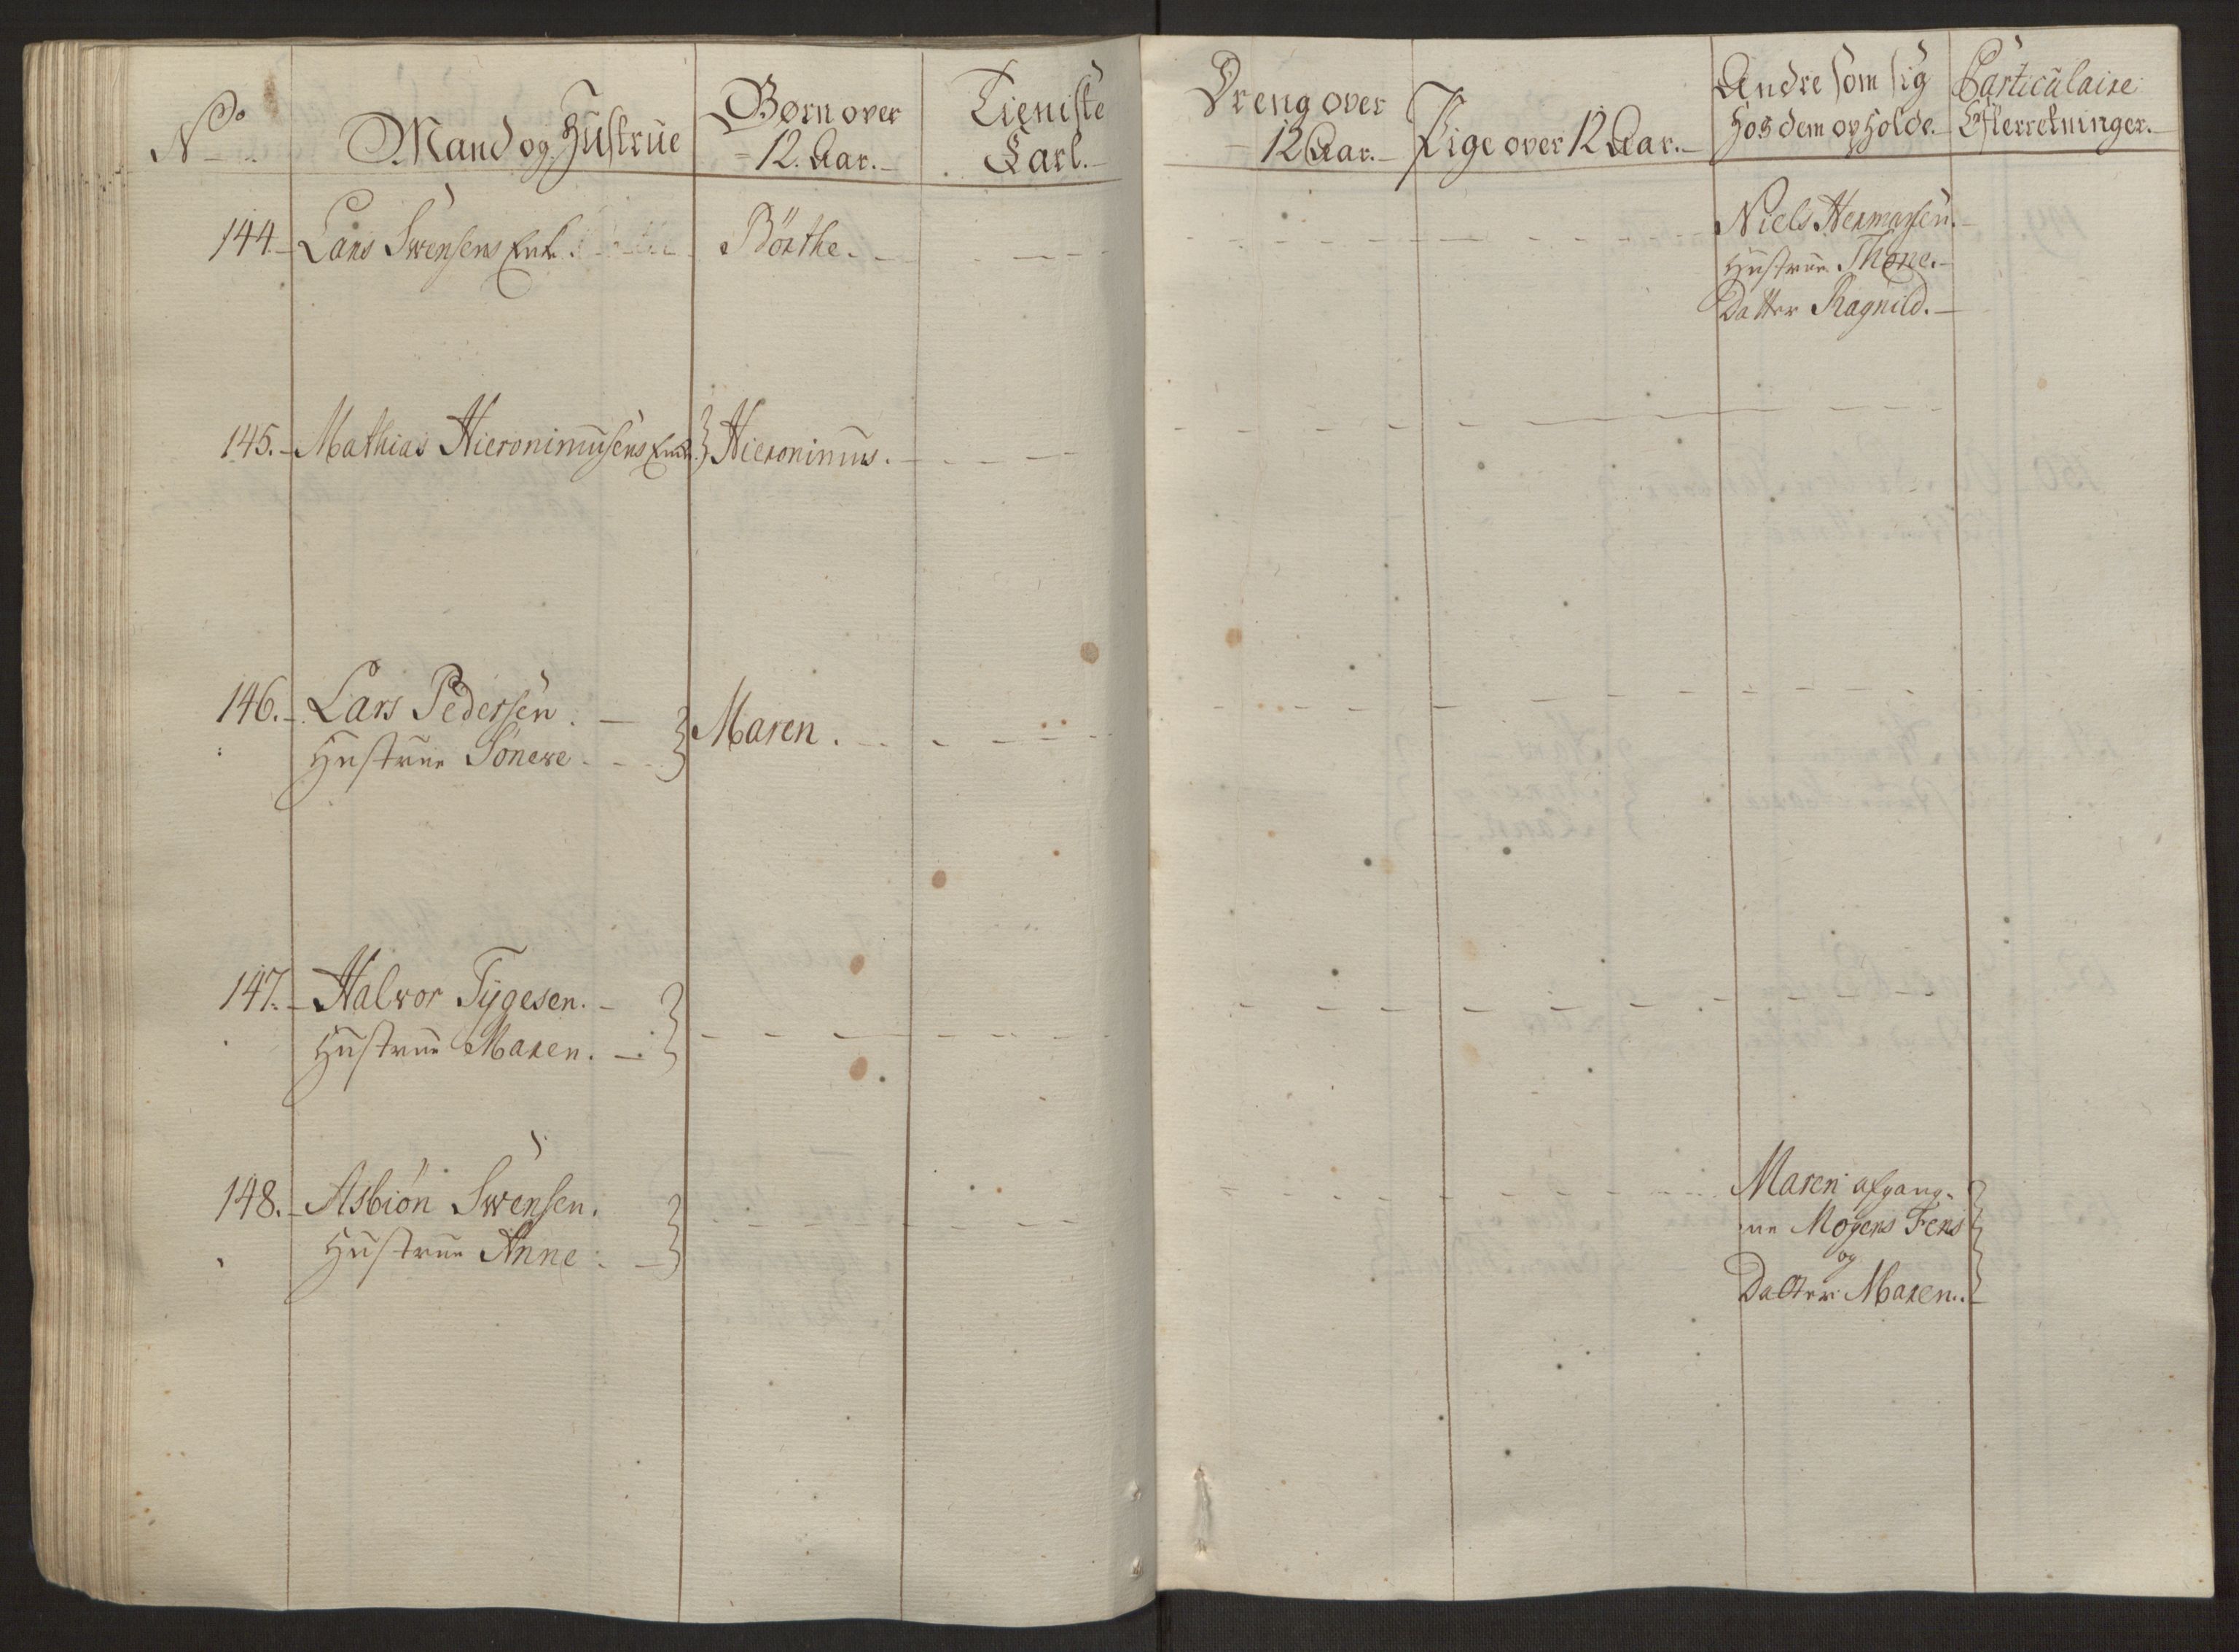 No
Mand og Hustrue
Børn over
12. Aar.
Tieniste
Karl.
Dreng over
12 Aar.
Pige over 12 Aar.
Andre som sig
Hos dem opholde.
Particulaire
Efterretninger.
144. Lars Swensens Enk.
Börthe.
Niels Hermansen.
Hustrue Thone.
Datter Ragnild.
145. Mathias Hieronimusens Enk. } Hieronimus.
146. Lars Pedersen.
Hustrue Sönewe } Maren.
147. Halvor Tÿgesen.
Hustrue Maren. }
148. Asbiön Swensen.
Hustrue Anne }
Maren afgang-
ne Mogens Fens
og
Datter Maren.